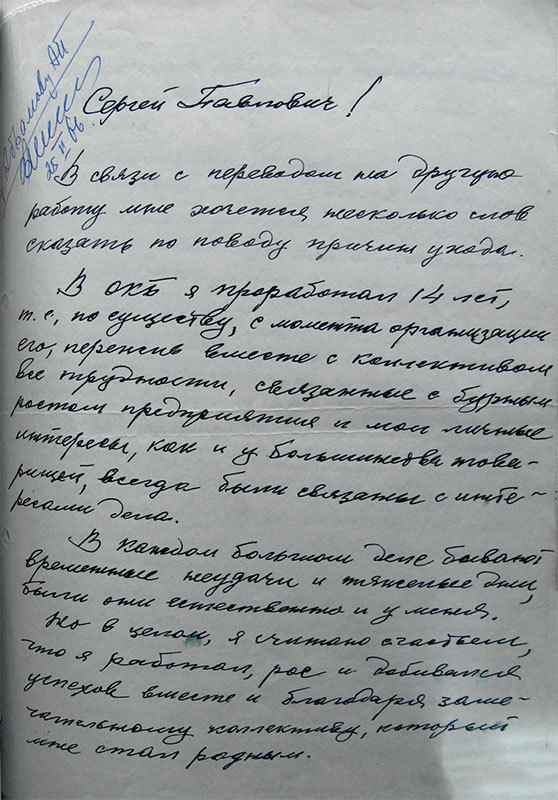 Абрамову АП
25 II 66
Сергей Павлович!
В связи с переводом на другую
работу мне хочется несколько слов
сказать по поводу причин ухода.
В ОКБ я проработал 14 лет,
т.е, по существу, с момента организации
его, пережив вместе с коллективом
все трудности, связанные с бурным
ростом предприятия и мои личные
интересы, как и у большинства това-
рищей, всегда были связаны с инте-
ресами дела.
В каждом большом деле бывают
временные неудачи и тяжелые дни,
были они естественно и у меня.
Но в целом, я считаю счастьем,
что я работал, рос и добивался
успехов вместе и благодаря заме-
чательному коллективу, который
мне стал родным.